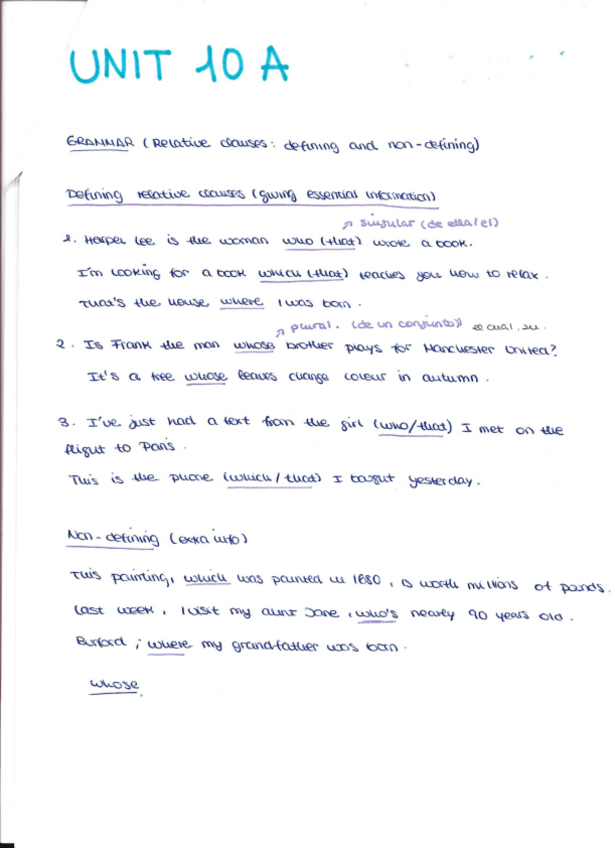 UNIT 10 A
GRAMMAR (Relative clauses: defining and non-defining)
Defining relative clauses (giving essential information)
↗ singular (de ella/el)
1. Harper Lee is the woman who (that) wrote a book.
I'm looking for a book which (that) teaches you how to relax.
That's the house where I was born.
↗ plural. (de un conjunto) el cual, su.
2. Is Frank the man whose brother plays for Manchester United?
It's a tree whose leaves change colour in autumn.
3. I've just had a text from the girl (who/that) I met on the
flight to Paris.
This is the phone (which/that) I bought yesterday.
Non-defining (extra info)
This painting, which was painted in 1680, is worth millions of pounds.
Last week, I visit my aunt Jane, who's nearly 90 years old.
Burford, where my grandfather was born.
whose.